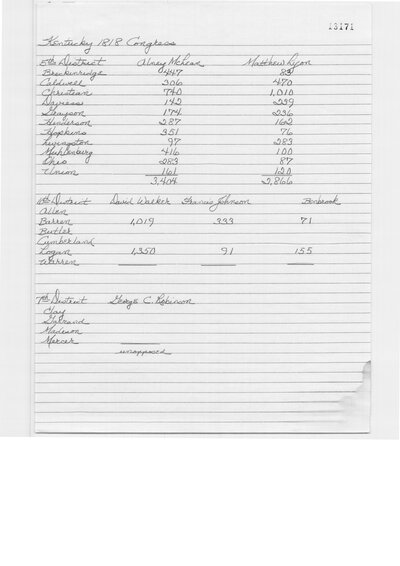 13171
Kentucky 1818 Congress
5th District Alney McLean Matthew Lyon
Breckinridge 447 83
Caldwell 306 470
Christian 740 1,010
Daviess 142 239
Grayson 174 236
Henderson 287 162
Hopkins 351 76
Livingston 97 283
Muhlenberg 416 100
Ohio 283 87
Union 161 120
3,404 2,866
6th District David Walker Francis Johnson Bonbrook
Allen
Barren 1,019 333 71
Butler
Cumberland
Logan 1,350 91 155
Warren
7th District George C. Robinson
Clay
Garrard
Madison
Mercer
unopposed